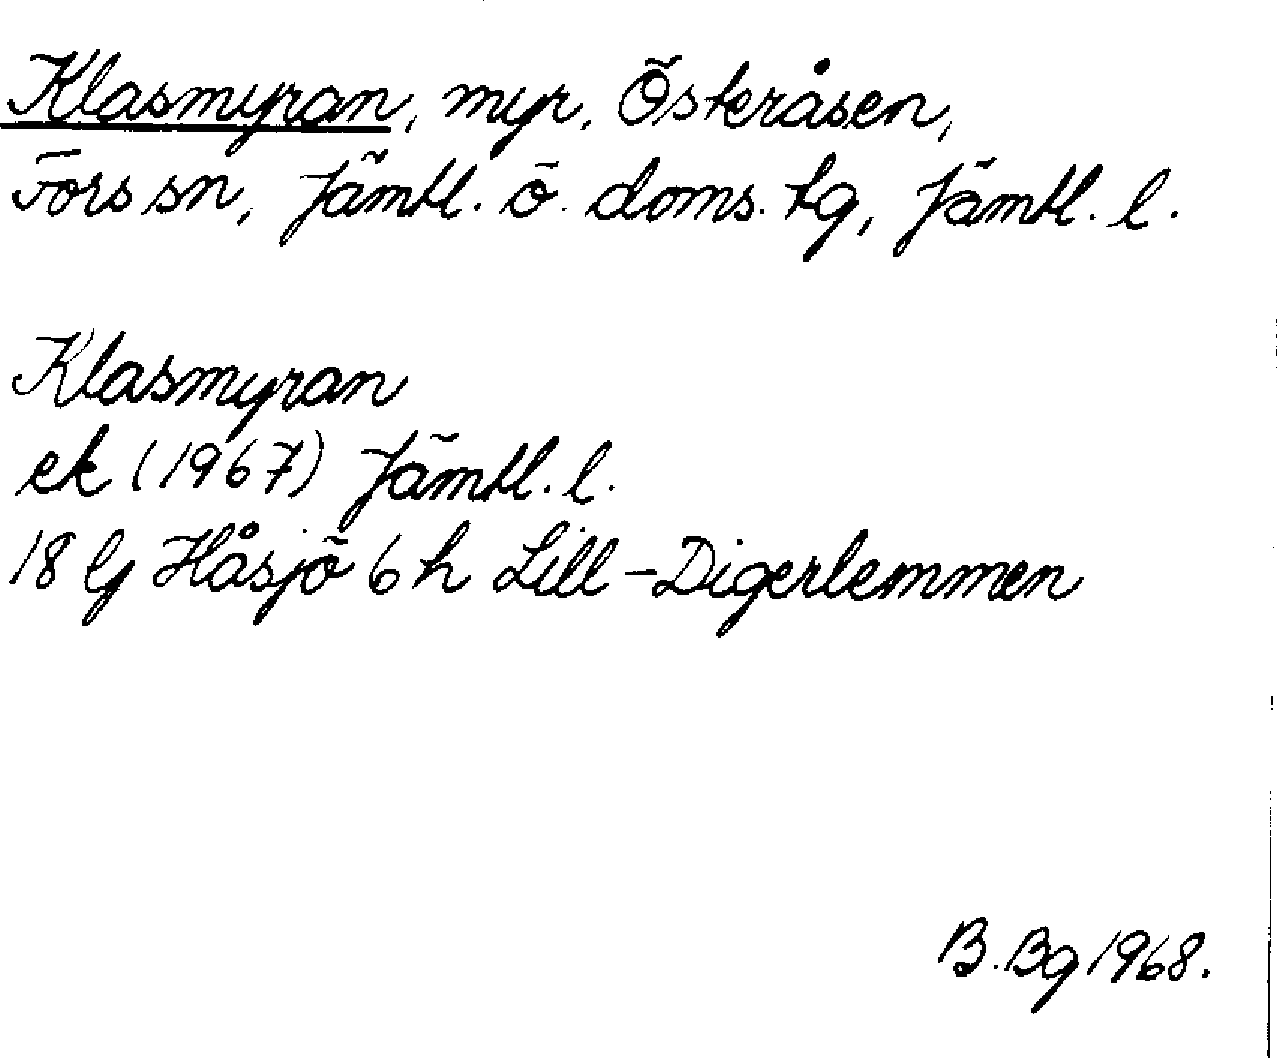 Klasmyran, myr, Österåsen,
Fors sn, Jämtl. ö. doms. tg, Jämtl. l.
Klasmyran
ek (1967) Jämtl. l.
18 G Håsjö 6 h Lill-Digerlemmen
B. Bg 1968.